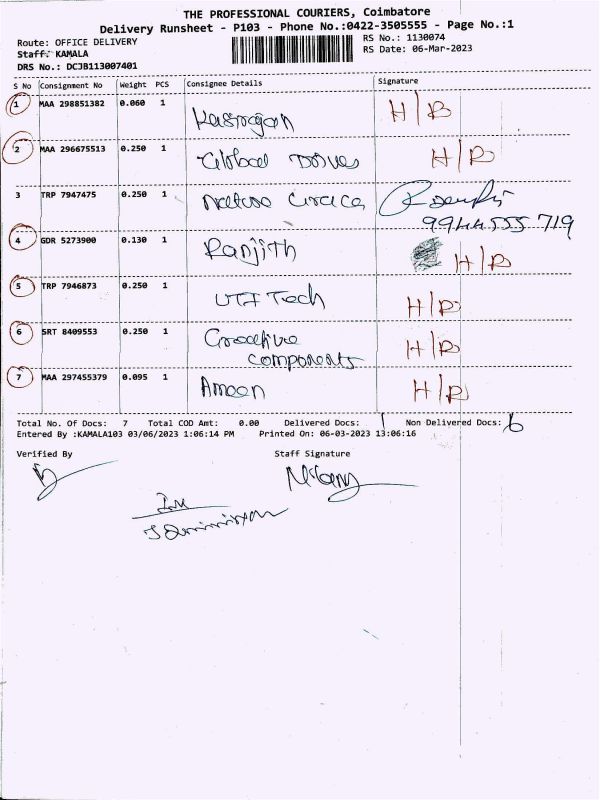 THE PROFESSIONAL COURIERS, Coimbatore
Delivery Runsheet - P103 - Phone No.:0422-3505555 - Page No.:1
Route: OFFICE DELIVERY RS No.: 1130074
Staff: KAMALA RS Date: 06-Mar-2023
DRS No.: DCJB113007401
S No Consignment No Weight PCS Consignee Details Signature
1 MAA 298851382 0.060 1 H/R
2 MAA 296675513 0.250 1 Global H/R
3 TRP 7947475 0.250 1
9944555 719
4 GDR 5273900 0.130 1 Ranjith H/R
5 TRP 7946873 0.250 1 Tech H/R
6 SRT 8409553 0.250 1 Creative H/R
components
7 MAA 297455379 0.095 1 Ameen H/R
Total No. Of Docs: 7 Total COD Amt: 0.00 Delivered Docs: 1 Non Delivered Docs: 6
Entered By :KAMALA103 03/06/2023 1:06:14 PM Printed On: 06-03-2023 13:06:16
Verified By Staff Signature